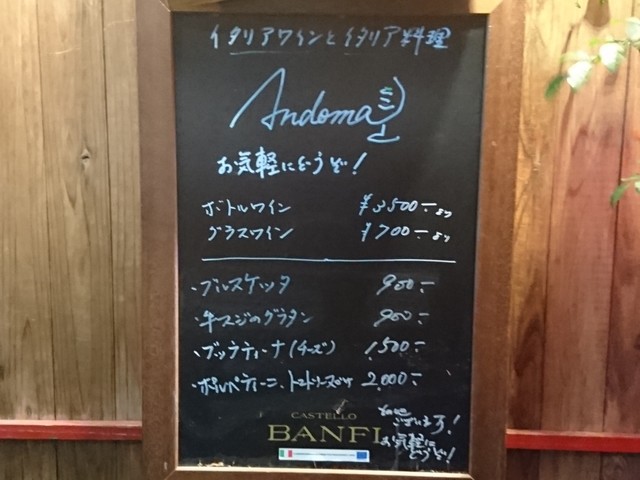 イタリアワインとイタリア料理
Andoma
お気軽にどうぞ!
ボトルワイン ¥3500-より
グラスワイン ¥700-より
・ブルスケッタ 900-
・牛スジのグラタン 900-
・ブッラティーナ(チーズ) 1,500-
・ポルペティーニ、トマトソース 2,000-
CASTELLO
BANFI
ございます!
お気軽に
どうぞ!